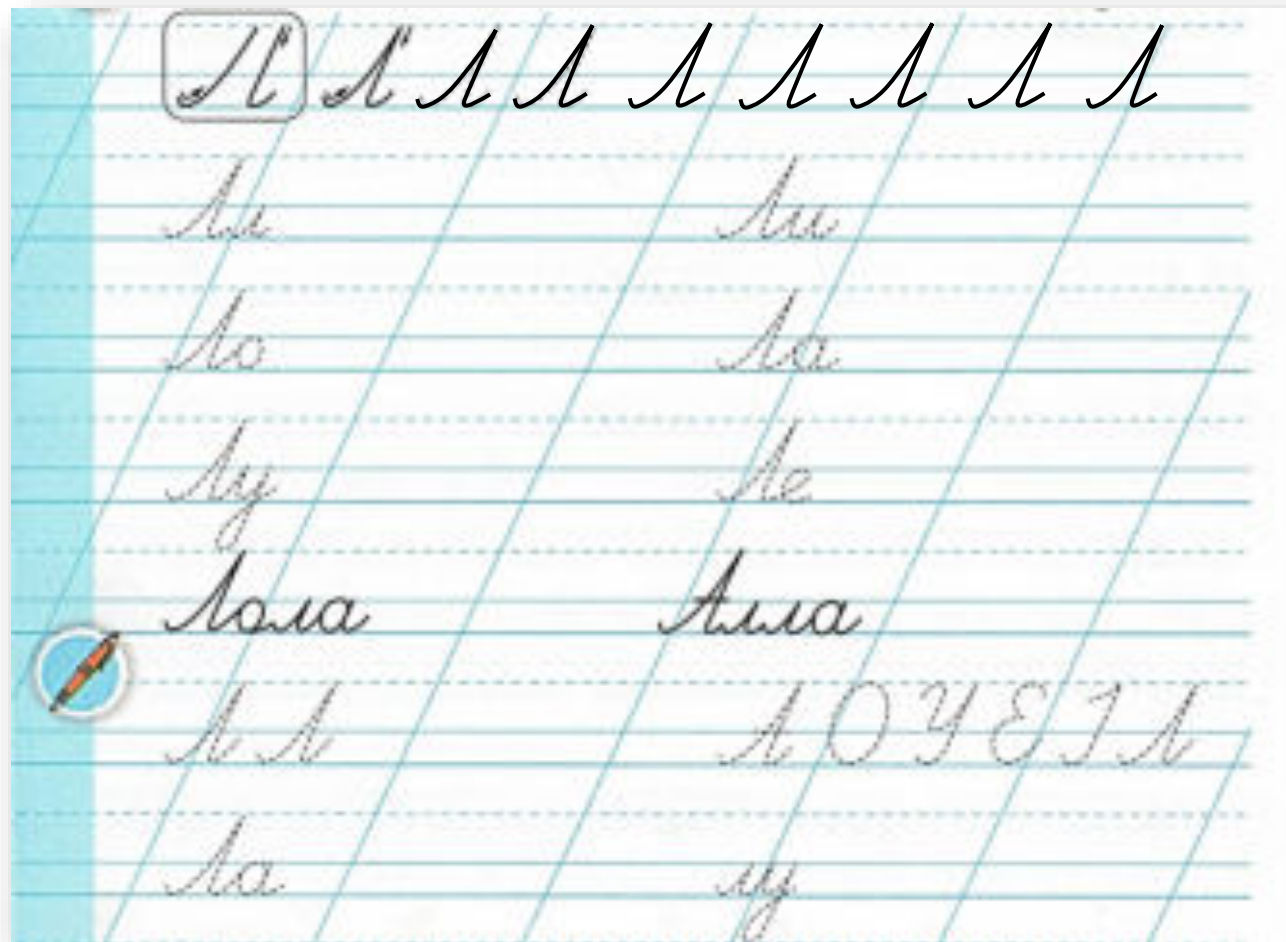 Л Л Л Л Л Л Л Л Л
Лл Ли
Ло Ла
Лу Ле
Лола Алла
А Л А О У Е І Л
Ла лу